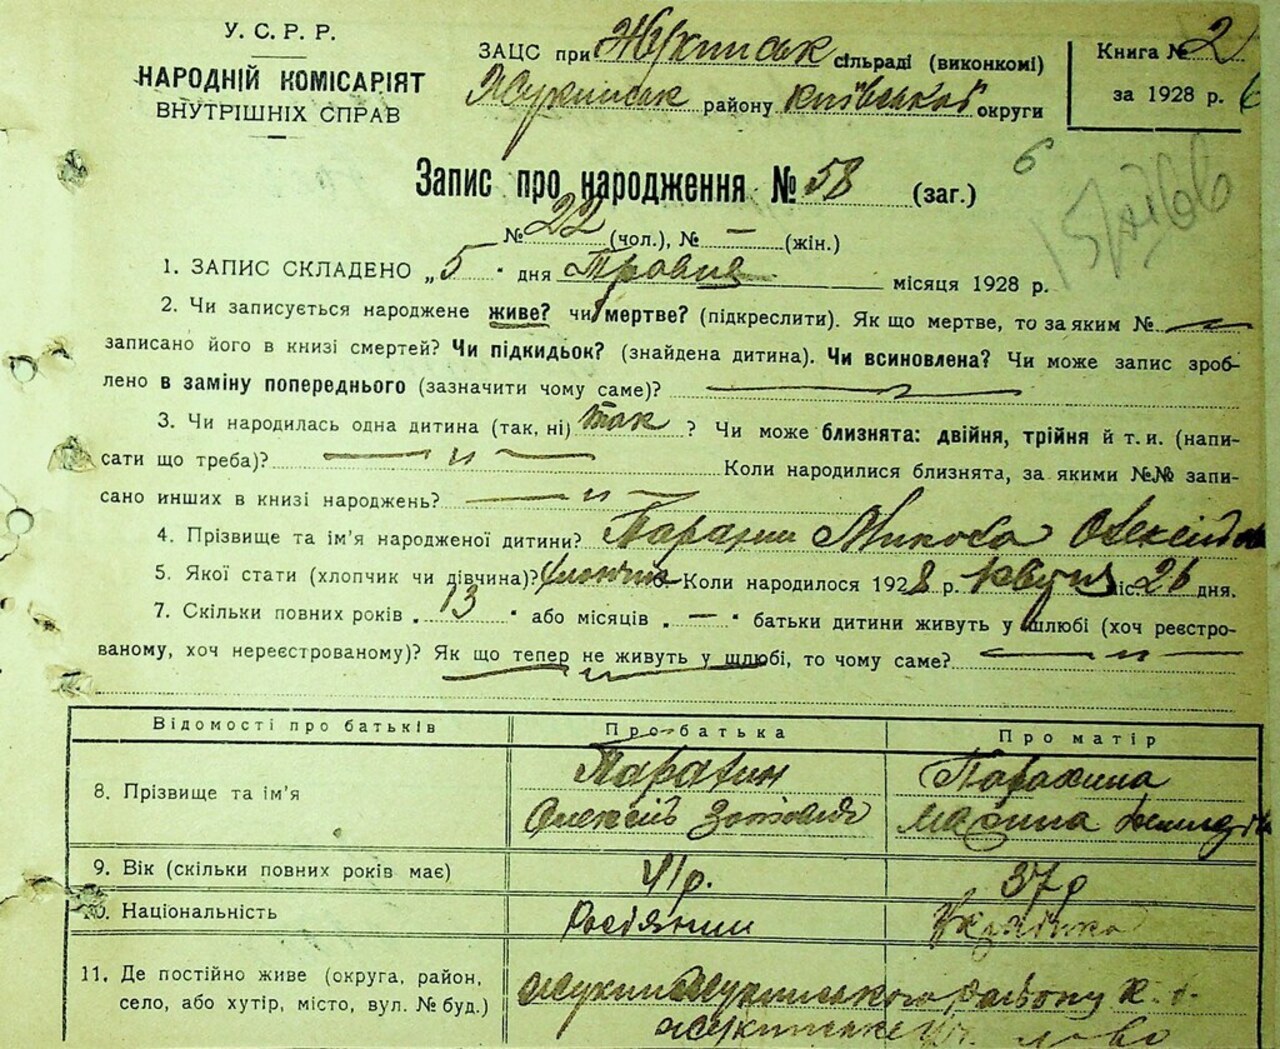 У. С. Р. Р.
НАРОДНІЙ КОМІСАРІЯТ
ВНУТРІШНІХ СПРАВ
ЗАЦС при Жукинськ сільраді (виконкомі)
Жукинськ району Київської округи
Книга № 2
за 1928 р.
6
Запис про народження № 58 (заг.)
№ 22 (чол.), № — (жін.)
1. ЗАПИС СКЛАДЕНО „5" дня Травня місяця 1928 р.
2. Чи записується народжене живе? чи мертве? (підкреслити). Як що мертве, то за яким № —
записано його в книзі смертей? Чи підкидьок? (знайдена дитина). Чи всиновлена? Чи може запис зроб-
лено в заміну попереднього (зазначити чому саме)? —
3. Чи народилась одна дитина (так, ні) так ? Чи може близнята: двійня, трійня й т. и. (напи-
сати що треба)? — „ — Коли народилися близнята, за якими №№ запи-
сано инших в книзі народжень? — „ —
4. Прізвище та ім'я народженої дитини? Парахин Микола
5. Якої стати (хлопчик чи дівчина)? Коли народилося 1928 р. Квітня міс. 26 дня.
7. Скільки повних років „13" або місяців „—" батьки дитини живуть у шлюбі (хоч реєстро-
ваному, хоч нереєстрованому)? Як що тепер не живуть у шлюбі, то чому саме? — „ —
Відомості про батьків
Про батька
Про матір
8. Прізвище та ім'я
Парахин
Олексій Зотович
Парахина
Марина
9. Вік (скільки повних років має)
41 р.
37 р
10. Національність
Росіянин
Українка
11. Де постійно живе (округа, район,
село, або хутір, місто, вул. № буд.)
Жукинського району К. о.